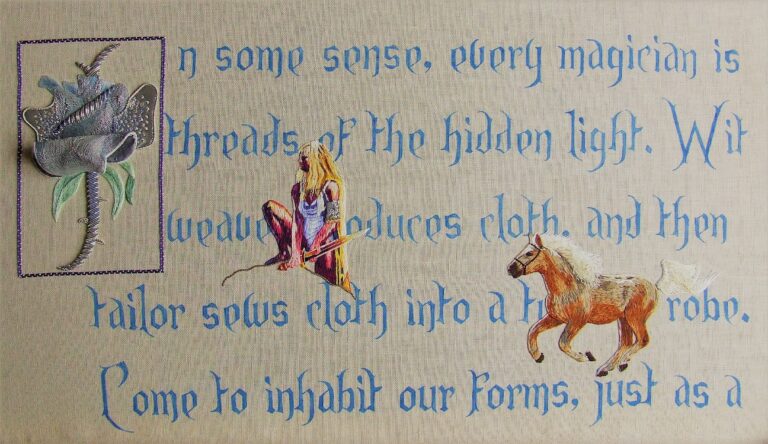 In some sense, every magician is
threads of the hidden light. Wit
weave oduces cloth, and then
tailor sews cloth into a robe.
Come to inhabit our forms, just as a